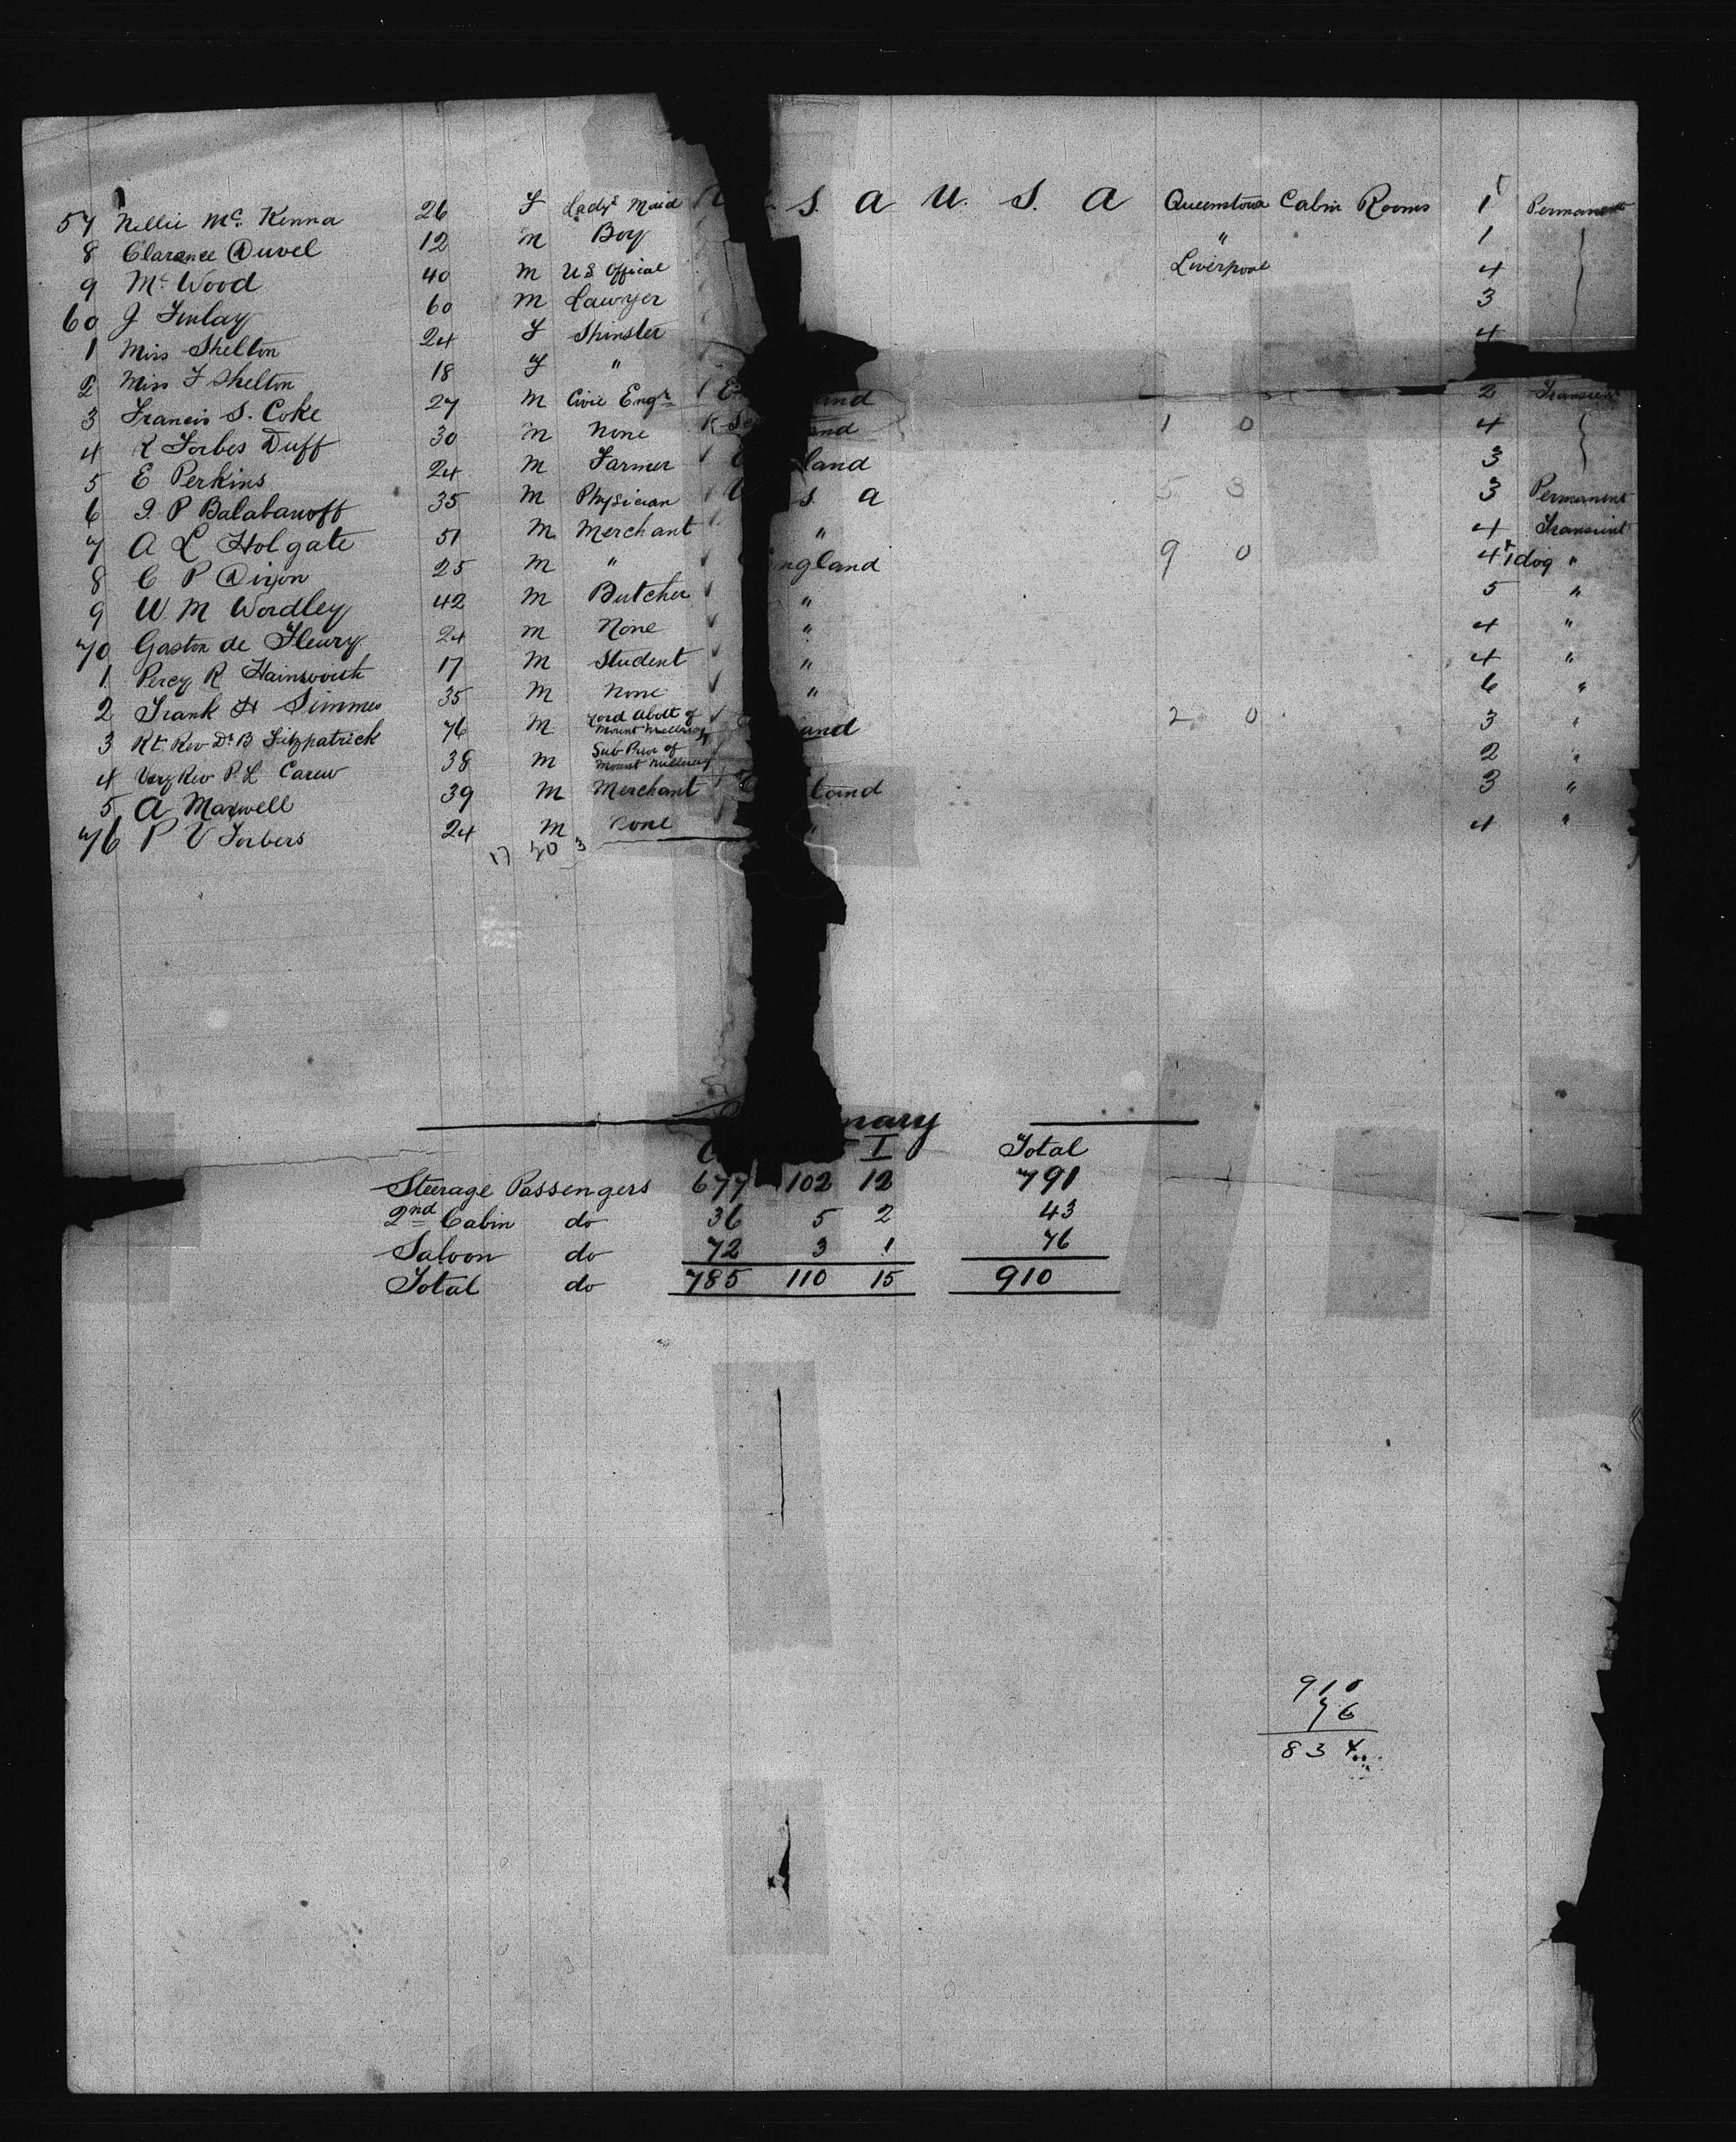 57 Nellie Mc Kenna 26 F Lady's Maid S. A U. S. A Queenstown Cabin Rooms 1 Permanent
8 Clarance Duvel 12 M Boy " 1
9 Mc Wood 40 M U S Official Liverpool 4
60 J Finlay 60 M Lawyer 3
1 Miss Shelton 24 F Spinster 4
2 Miss F Shelton 18 F "
3 Francis S. Coke 27 M Civil Engr and 2 Transient
4 R Forbes Duff 30 M None and 1 0 4
5 E Perkins 24 M Farmer land 3
6 P Balabanoff 35 M Physician S. A 5 3 3 Permanent
7 A L Holgate 51 M Merchant " 4 Transient
8 C P Dixon 25 M " ngland 9 0 4 + 1 dog "
9 W. M Wordley 42 M Butcher " 5 "
70 Gaston de Fleury 24 M None " 4 "
1 Percy R Hainsworth 17 M Student " 4 "
2 Frank H Simmes 35 M None " 6 "
3 Rt. Rev Dr B Fitzpatrick 76 M Lord Abott of Mount Melleray and 2 0 3 "
4 Very Rev P. L Carew 38 M Sub Prior of Mount Melleray 2 "
5 A Maxwell 39 M Merchant land 3 "
76 P V Forbers 24 M None " 4 "
17 70 3
mary
I Total
Steerage Passengers 677 102 12 791
2nd Cabin do 36 5 2 43
Saloon do 72 3 1 76
Total do 785 110 15 910
910
76
834